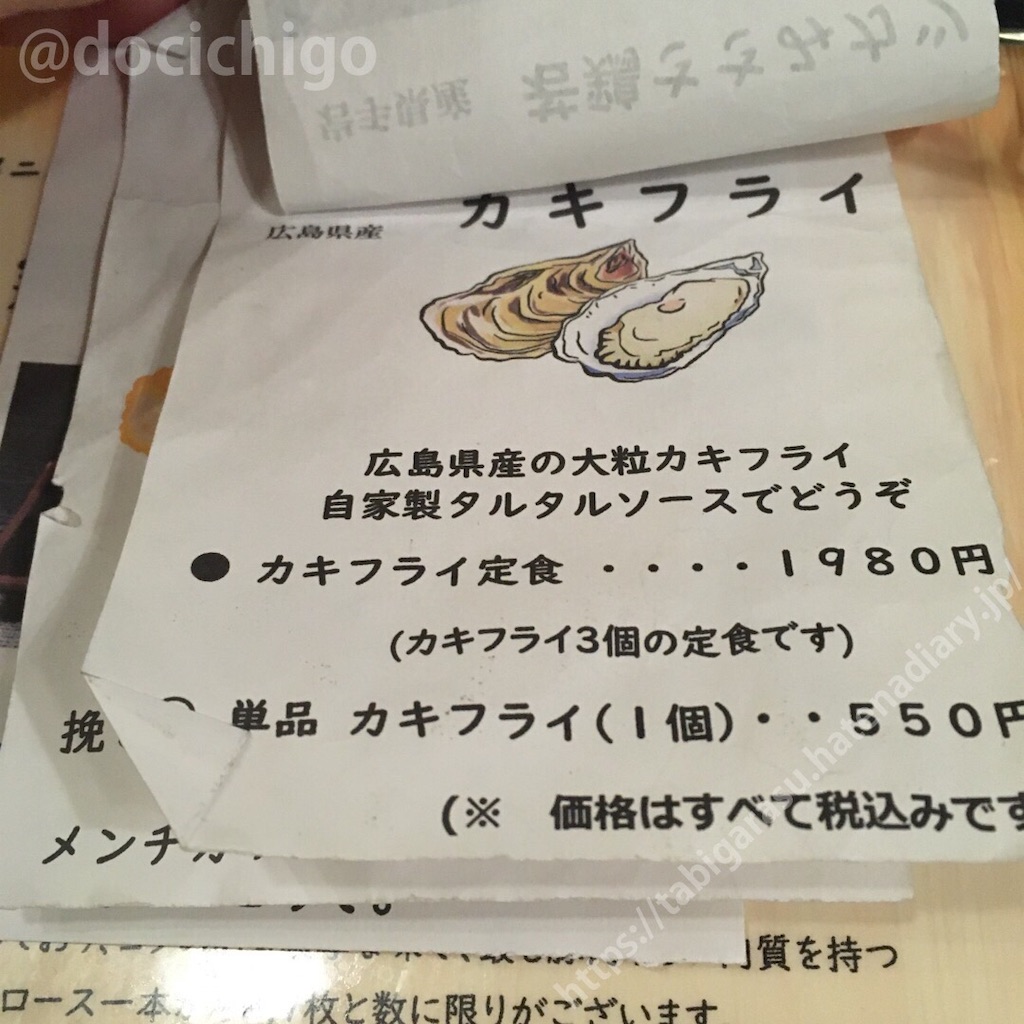 @docichigo
岩手県産 若鶏ささみカツ
広島県産 カキフライ
広島県産の大粒カキフライ
自家製タルタルソースでどうぞ
● カキフライ定食 ・・・・1980円
(カキフライ3個の定食です)
単品 カキフライ(1個)・・550円
(※ 価格はすべて税込みです
挽
メンチカ
質を持つ
ロース一本
枚と数に限りがございます
https://tabigatatsu.hatenadiary.jp/